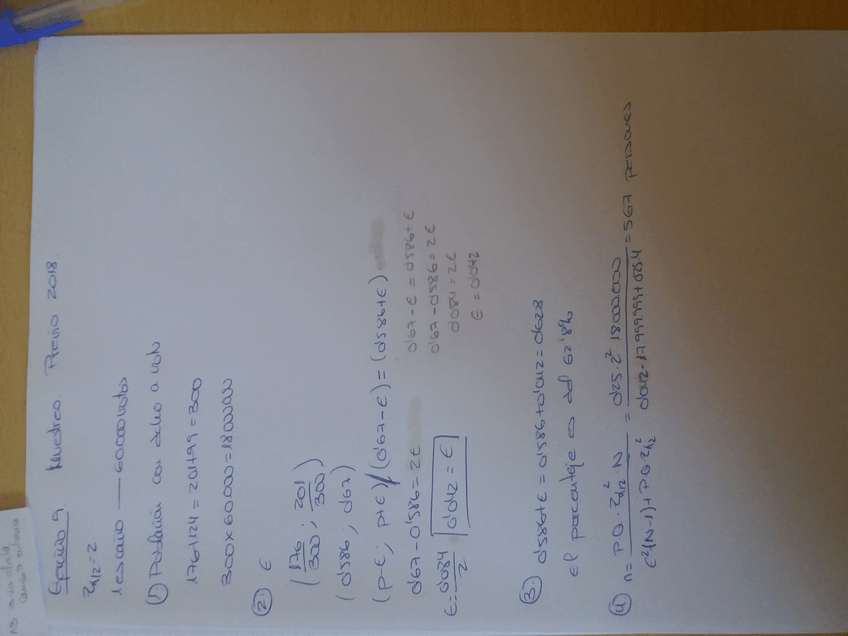 Ejercicio 9 Muestreo. Previo 2018.
Zα/2 = 2
1 escaño — 60000 votos
① Población con derecho a voto
176+124 = 201+99 = 300
300 x 60.000 = 18000000
② ε
(176/300 ; 201/300)
(0'586 ; 0'67)
(p-ε ; p+ε) (0'67-ε) = (0'586+ε)
0'67 - 0'586 = 2ε
ε = 0'084/2 0'042 = ε
0'67 - ε = 0'586 + ε
0'67 - 0'586 = 2ε
0'084 = 2ε
ε = 0'042
③ 0'586+ε = 0'586+0'042 = 0'628
el porcentaje es del 62'8%
④ n = PQ · Zα/2² · N / ε²(N-1) + PQ Zα/2² = 0'25 · 2² · 18000000 / 0'042 · 17.999999 + 0'25·4 = 567 personas